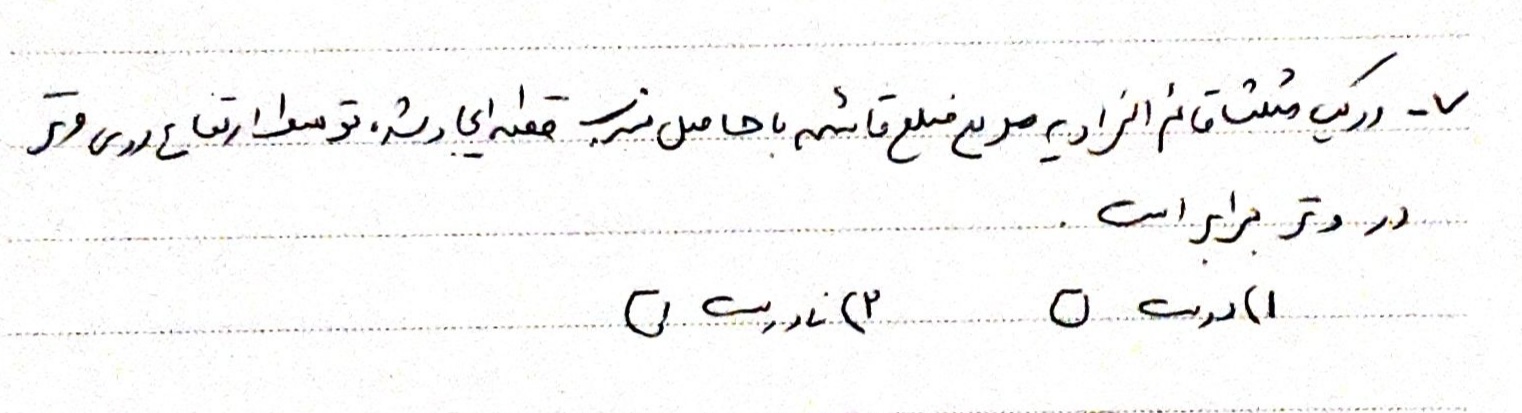 ۷- در یک مثلث قائم الزاویه مربع ضلع قائمه با حاصل ضرب قطعه ایجاد شده توسط ارتفاع روی وتر
در وتر برابر است .
۱) درست
۲) نادرست